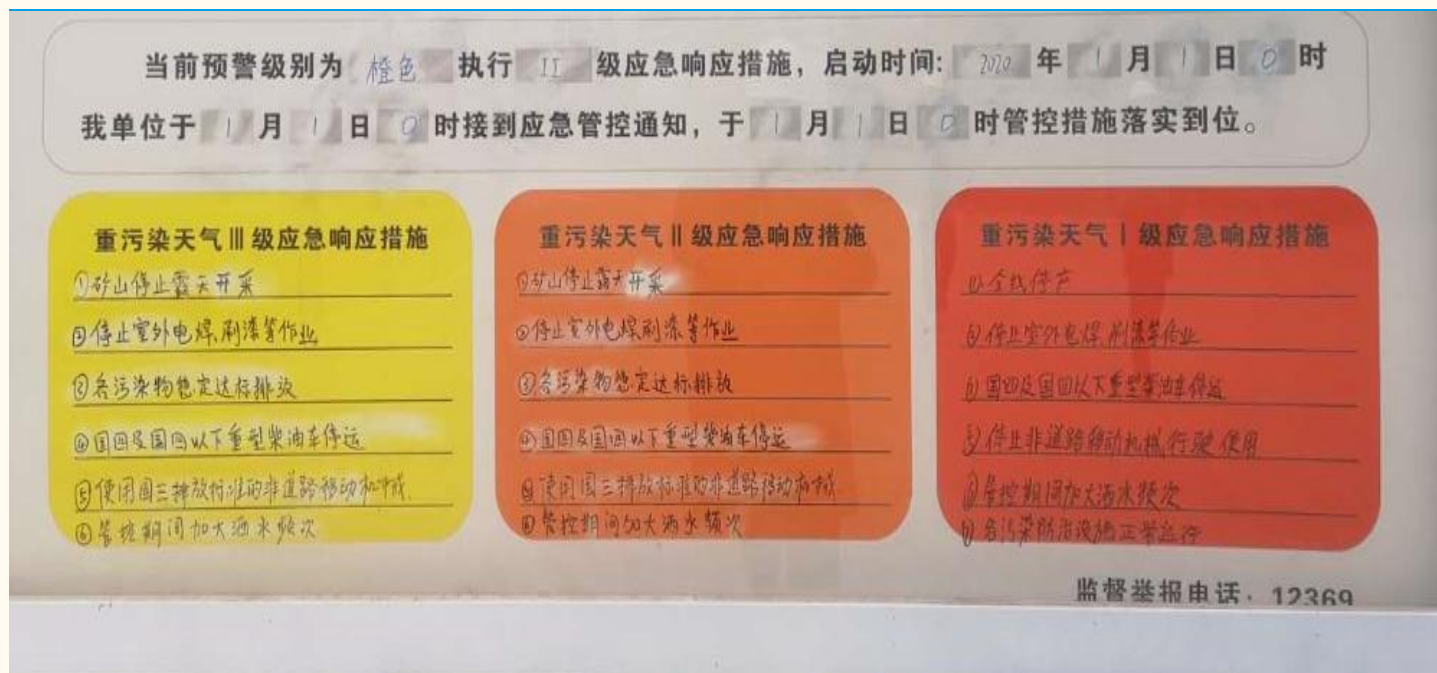 当前预警级别为 橙色 执行 II 级应急响应措施，启动时间: 2020 年 1 月 1 日 0 时
我单位于 1 月 1 日 0 时接到应急管控通知，于 1 月 1 日 0 时管控措施落实到位。
重污染天气Ⅲ级应急响应措施
①矿山停止露天开采
②停止室外电焊、刷漆等作业
③各污染物稳定达标排放
④国四及国四以下重型柴油车停运
⑤使用国三排放标准的非道路移动机械
⑥管控期间加大洒水频次
重污染天气Ⅱ级应急响应措施
①矿山停止露天开采
②停止室外电焊刷漆等作业
③各污染物稳定达标排放
④国四及国四以下重型柴油车停运
⑤使用国三排放标准的非道路移动机械
⑥管控期间加大洒水频次
重污染天气Ⅰ级应急响应措施
全线停产
停止室外电焊、刷漆等作业
国四及国四以下重型柴油车停运
停止非道路移动机械行驶使用
管控期间加大洒水频次
各污染防治设施正常运行
监督举报电话：12369